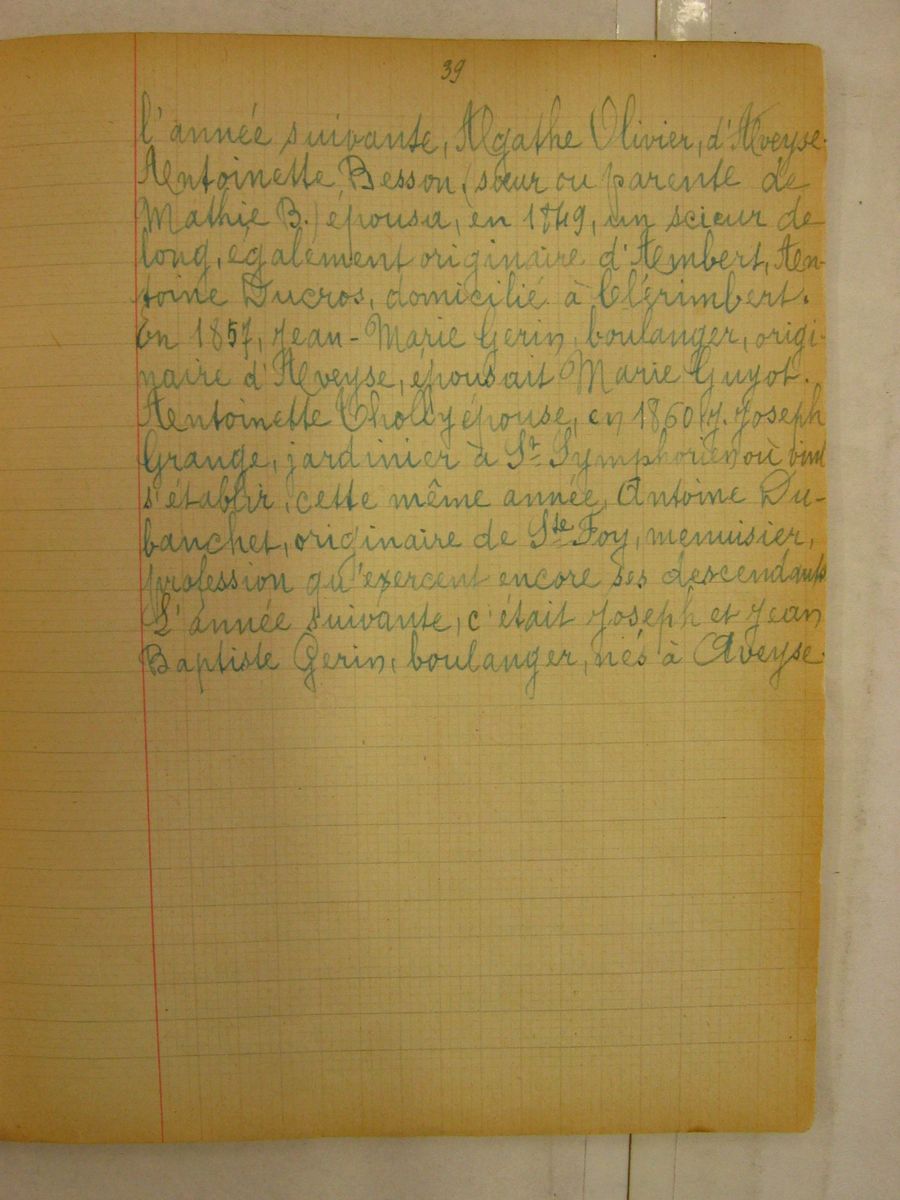 39
l'année suivante, Agathe Olivier, d'Aveyse.
Antoinette Besson, (sœur ou parente de
Mathie B.) épousa, en 1849, un scieur de
long, également originaire d'Ambert, An-
toine Ducros, domicilié à Clérimbert.
En 1857, Jean-Marie Gerin, boulanger, origi-
naire d'Aveyse, épousait Marie Guyot.
Antoinette Cholly épouse, en 1860, J. Joseph
Grange, jardinier à St Symphorien où vint
s'établir, cette même année, Antoine Du-
banchet, originaire de Ste Foy, menuisier,
profession qu'exercent encore ses descendants.
L'année suivante, c'était Joseph et Jean
Baptiste Gerin, boulanger, nés à Aveyse.